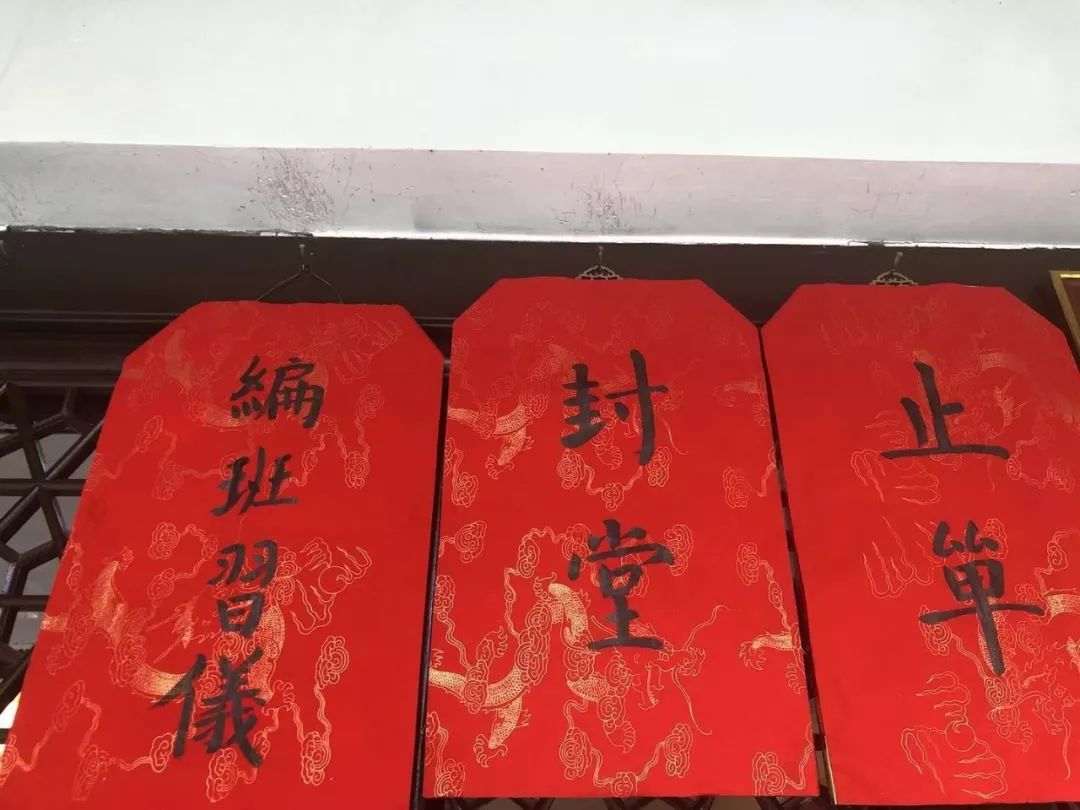 止單
封堂
編班習儀